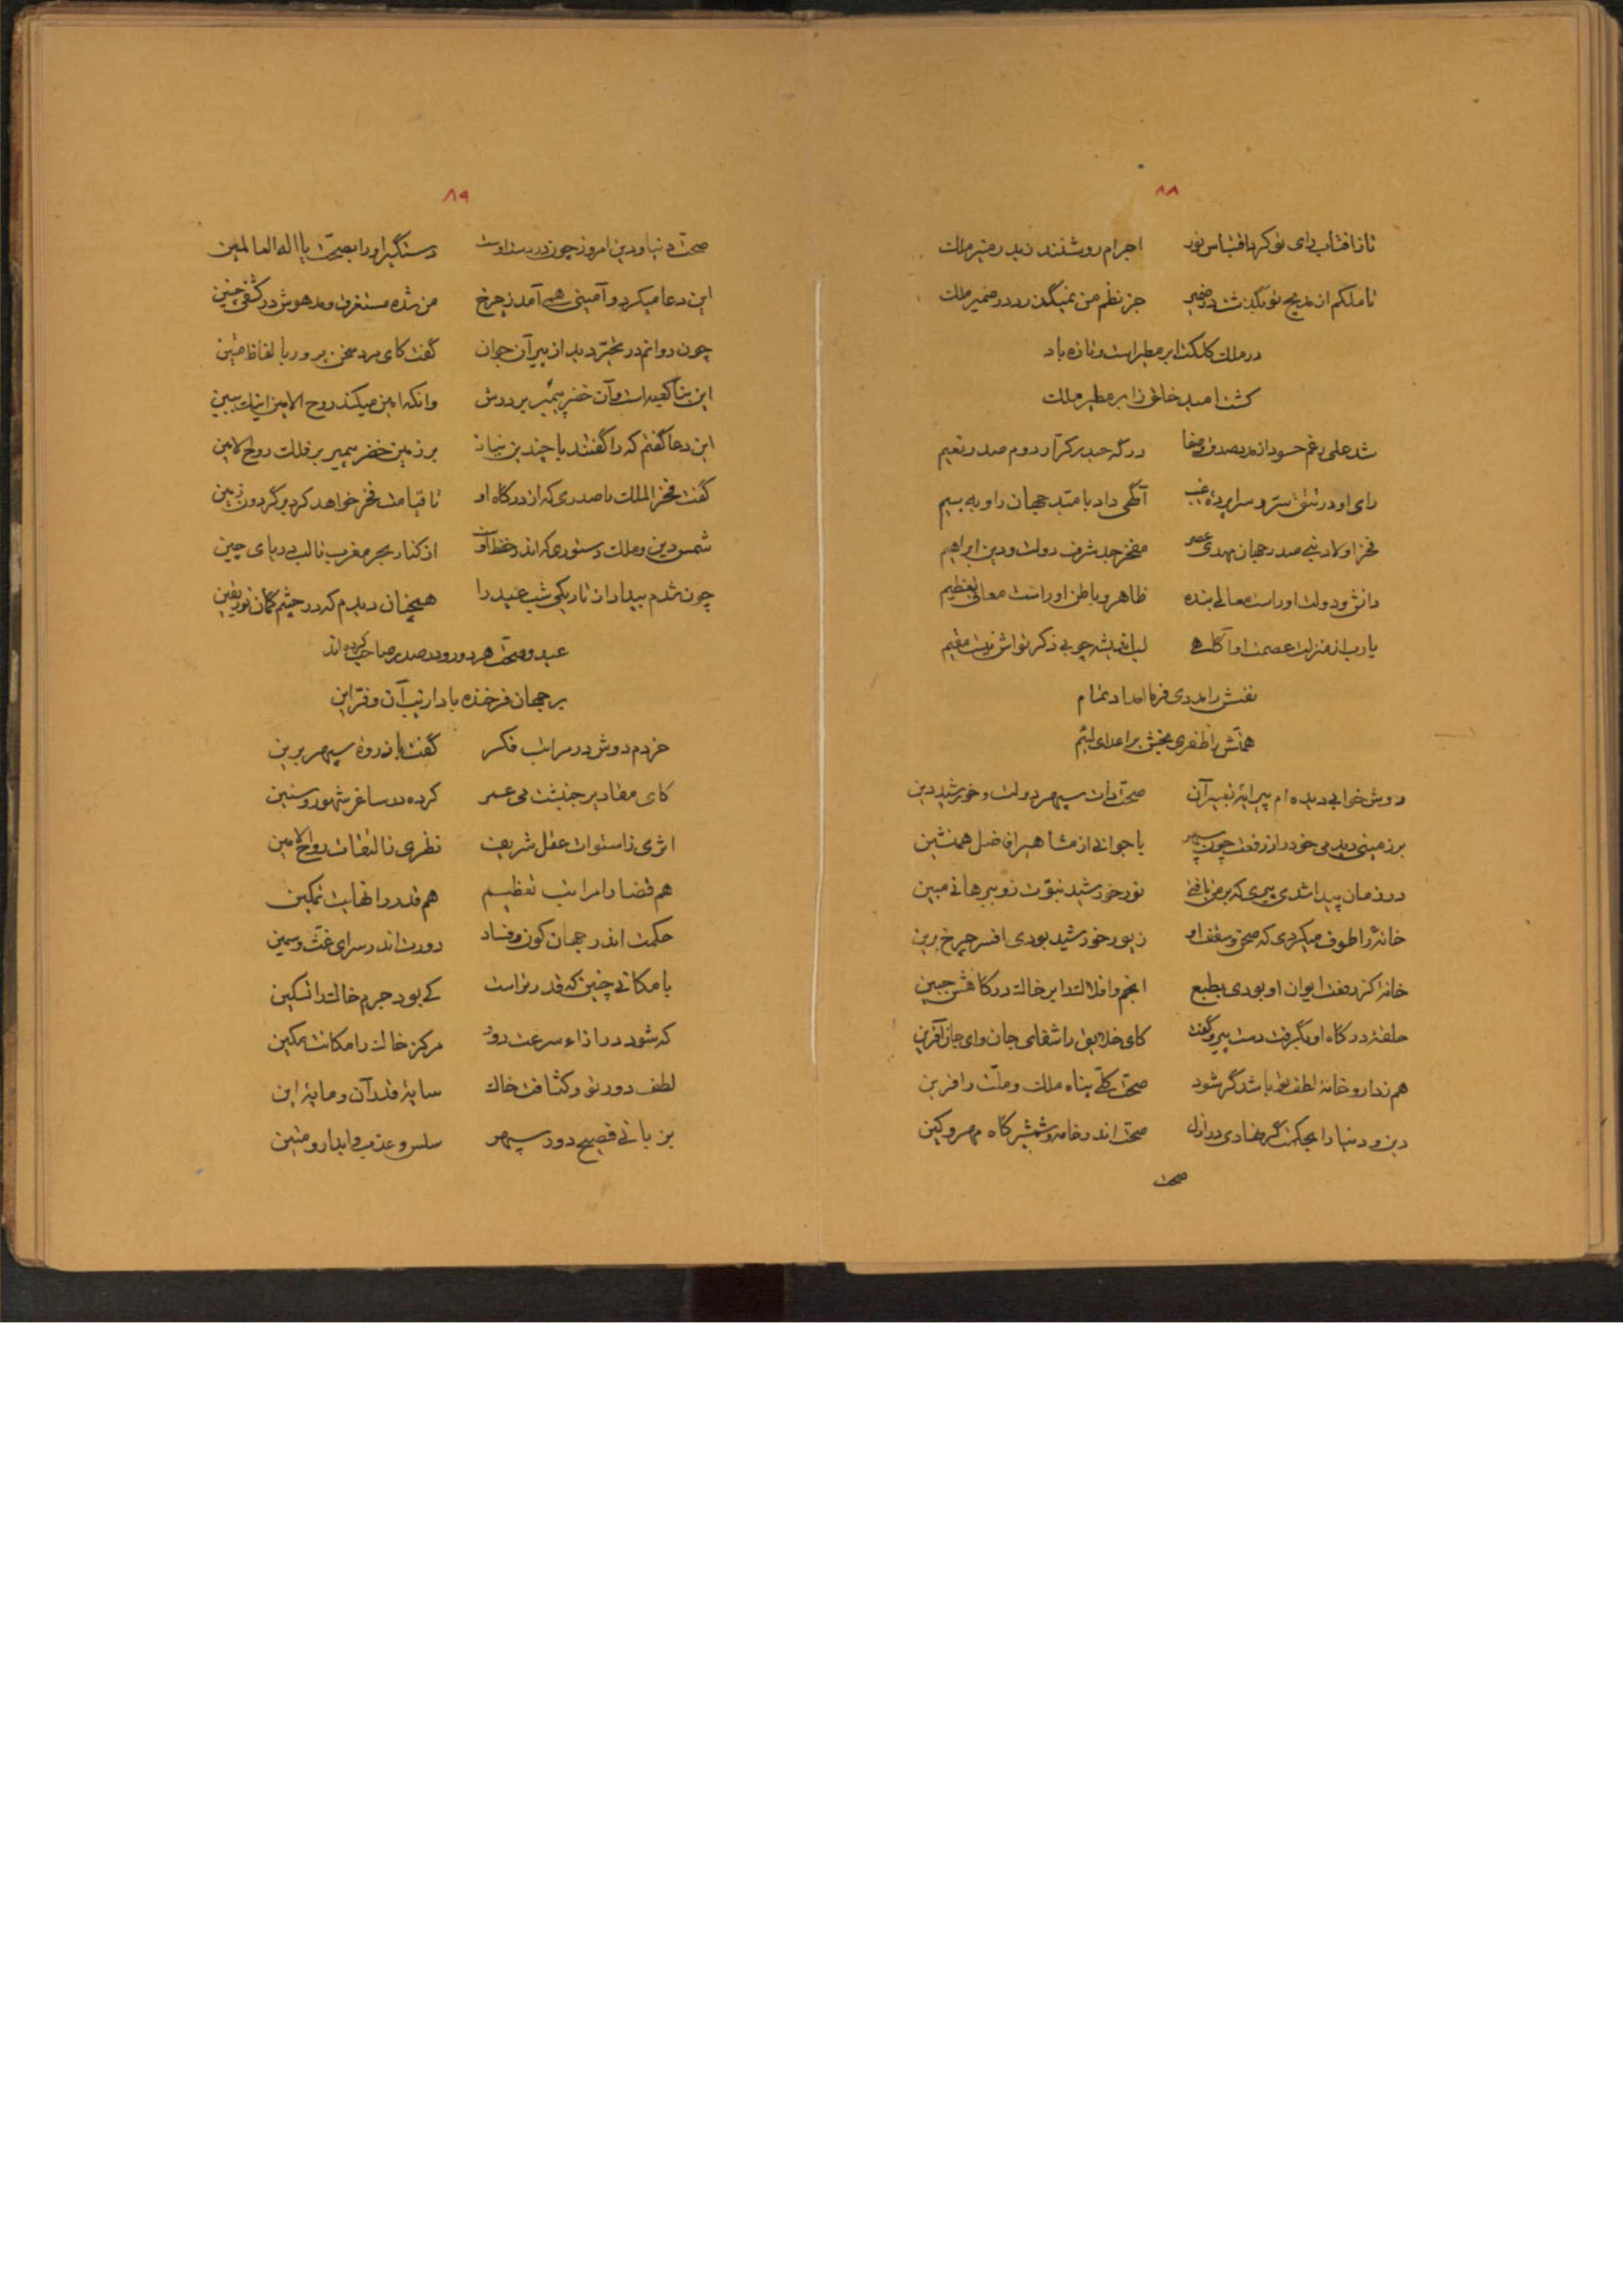 ۸۸
تا ز آفتاب رای تو کرد اقتباس نور اجرام روشنند ز بدر منیر ملک
تا ملکم از مدیح تو بگذشت در ضمیر جز نظم من نمیگذرد در ضمیر ملک
در ملک کلکت ابر مطیر است و تازه باد
کشت امید خلق ز ابر مطیر ملک
شد علی رغم حسود از مدد صدق و صفا درگه حیدر کرار دوم صدر نعیم
رای او در تتق ستر و سراپرده غیب آگهی داد بامید جهان را و به بیم
فخر اولاد نبی صدر جهان مهدی عصر مفخر جد شرف دولت و دین ابراهیم
دانش و دولت او راست معالی بنده ظاهر و باطن او راست معالی تعظیم
یارب از منزلت عصمت او آگاهی لب اندیشه چو بی ذکر تواش نیست مقیم
نفسش را مددی فرما امداد تمام
همتش را ظفری بخش بر اعدای لئیم
دوش خوابی دیده ام پیرایهٔ تعبیر آن صحت ذات سپهر دولت و خورشید دین
بر زمینی دیدمی خود را ز رفعت چون سپهر با جوانی از مشاهیر افاضل همنشین
در زمان پیدا شدی پیری که بر من تافتی نور خورشید نبوت زو ببرهانی مبین
خانهٔ را طوف میکردی که صحن و سقف او زیور خورشید بودی افسر چرخ برین
خانهٔ کز رفعت ایوان او بودی بطبع انجم و افلاک را بر خاک درگاهش جبین
حلقهٔ درگاه او بگرفت دست پیر و گفت کای خلایق را شفای جان و ای جان آفرین
هم ز دارو خانهٔ لطف تو باشد گر شود صحت کلی پناه ملک و ملت را قرین
دین و دنیا را بحکمت گر نهادی در ازل صحت اندر خامه و شمشیر گاه مهر و کین
صحت
۸۹
صحت دنیا و دین امروز چون در دست اوست دستگیر او را بصحت یا اله العالمین
این دعا میکرد و آمینی همی آمد ز چرخ من شده مستغرق و مدهوش در کشفی چنین
چون روانم در تحیر دید از پیر آن جوان گفت کای مرد سخن پرور بالفاظ متین
این بنا کعبه است و آن خضر پیمبر بر درش وانکه آمین میکند روح الامین است ببین
این دعا گفتم که را گفتند با چندین نیاز بر زمین خضر پیمبر بر فلک روح الامین
گفت فخر الملک با صدری که از درگاه او تا قیامت فخر خواهد کرد بر گردون زمین
شمس دین و ملک دستوری که اندر حفظ اوست از کنار بحر مغرب تا لب دریای چین
چون شدم بیدار از تاریکی شب عید را همچنان دیدم که در چشم گمان نور یقین
عید و صحت هر دو رو در صدر صاحب کرده اند
بر جهان فرخنده باد از زیب آن و فر این
خردم دوش در مراتب فکر گفت با ذروهٔ سپهر برین
کای مقادیر جنبشت می عمر کرده در ساغر شهور و سنین
اثری ز استوات عقل شریف نظری ز التفات روح الامین
هم قضا را مراتب تعظیم هم قدر را نهایت تمکین
حکمت اندر جهان کون و فساد دورت اندر سرای غث و سمین
با مکانی چنین که قدر تراست کی بود جرم خاک را تسکین
که شود در ازاء سرعت دور مرکز خاک را مکانت مکین
لطف دور تو و کثافت خاک سایهٔ قدر آن و مایهٔ این
بزبانی فصیح دور سپهر سلس و عذب و آبدار و متین